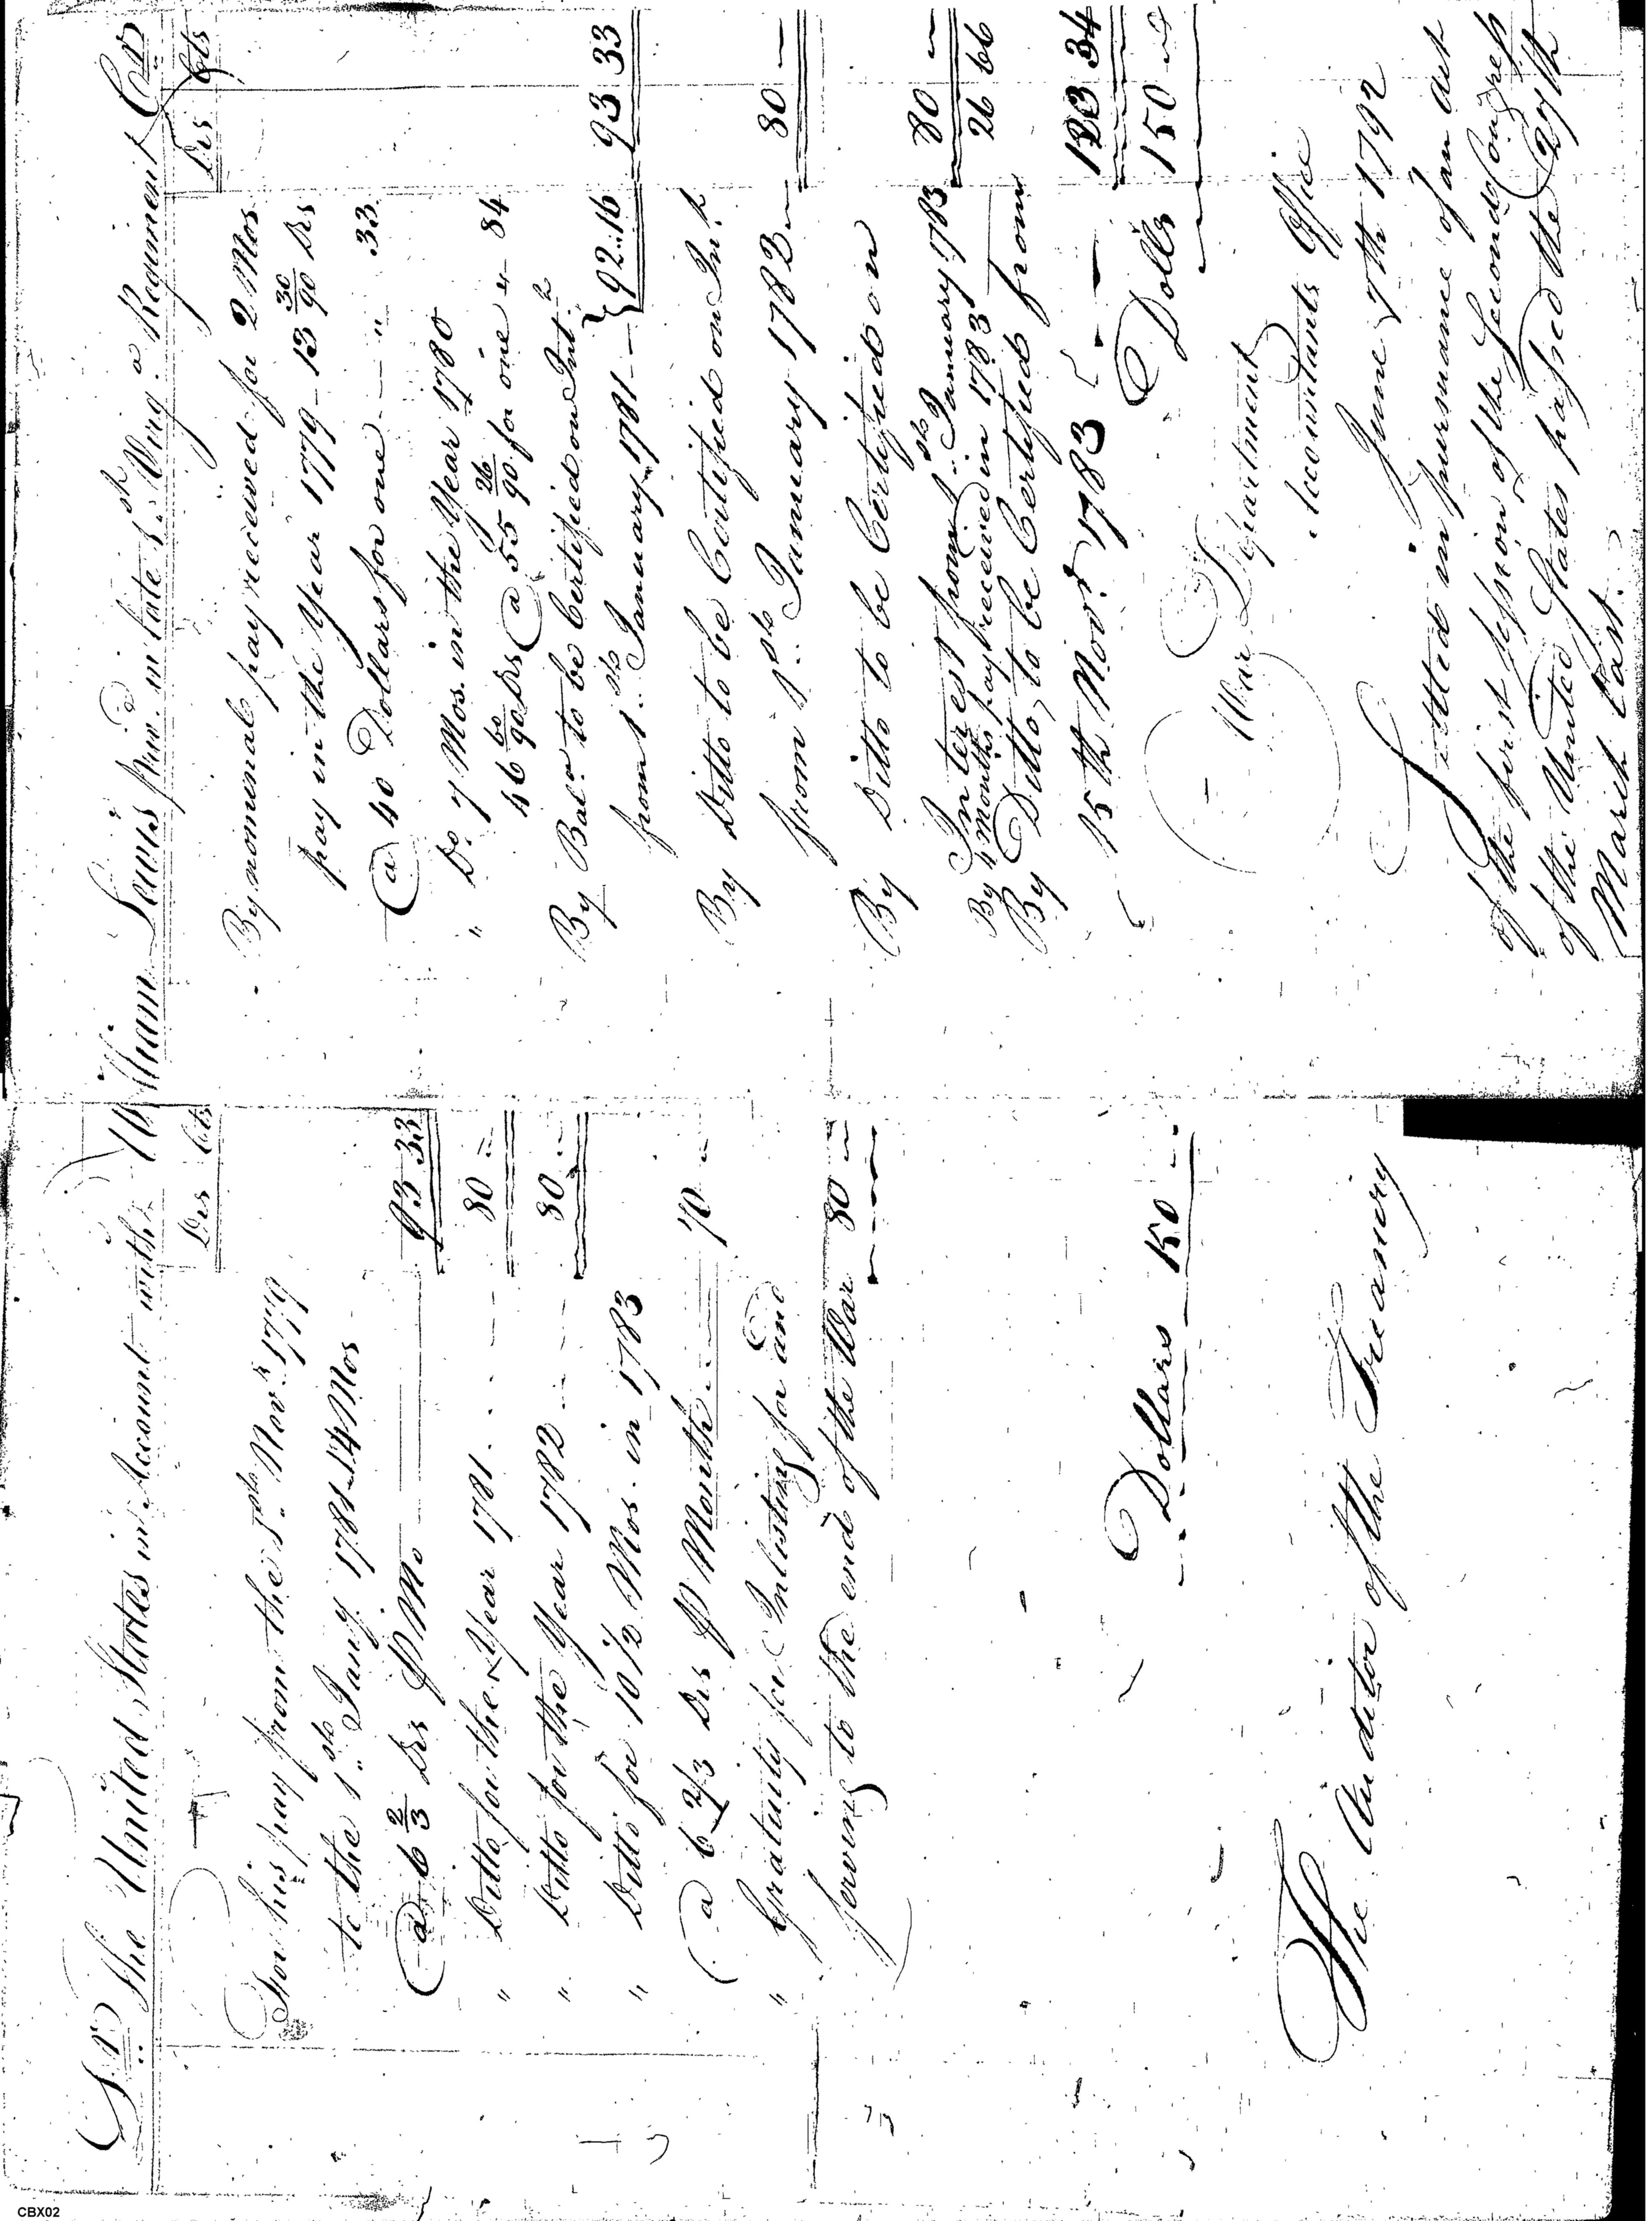 Dr The United States in Account with William Lewis
Drs Cts
For his pay from the 1st Novr. 1779
to the 1st Jany 1781 14 Mos
@ 6 2/3 Drs ⅌ Mo 93 33
" Ditto for the Year 1781 80 "
" Ditto for the Year 1782 80 "
" Ditto for 10 1/2 Mos. in 1783
@ 6 2/3 Drs ⅌ Month 70 "
" Gratuity for Inlisting for and
serving to the end of the War 80 "
Dollars 150
The Auditor of the Treasury
late 1st Virga. Regiment Cr
Drs Cts
By nominal pay received for 2 Mos
pay in the Year 1779 - 13 30/90 Drs
@ 40 Dollars for one " .33
" Do 7 Mos. in the Year 1780
46 60/90 Drs @ 55 26/90 for one " 84
By Bale. to be Certified on Int.
from 1st January 1781 92.16 93 33
By Ditto to be Certified on Int
from 1st January 1782 80
By Ditto to be Certified on
Interest from 1st January 1783 80
By 4 Months pay received in 1783 26 66
By Ditto, to be Certified from
15th Novr. 1783 123 34
Dolls 150
War Department
Accountants Office
June 7th 1792
Settled in pursuance of an act
of the first session of the second Congress
of the United States passed the 27th
March last.
CBX02